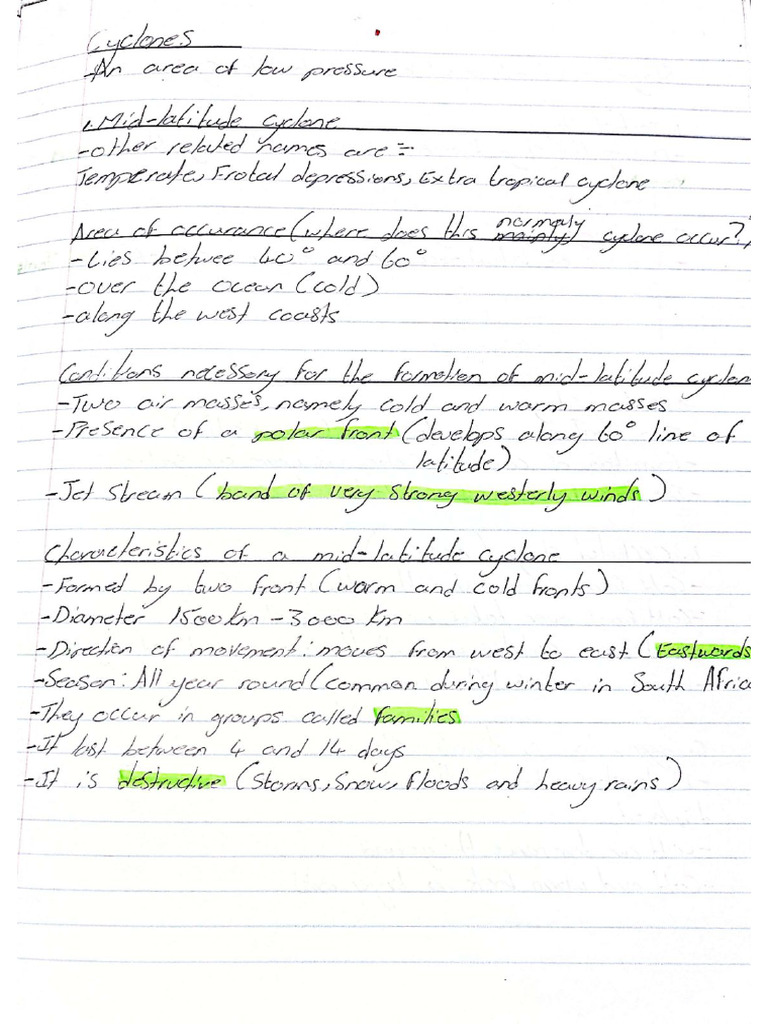 Cyclones
-An area of low pressure
1.Mid-latitude cyclone
-other related names are :-
Temperate, Frotal depressions, Extra tropical cyclone
Area of occurance (where does this mainly normaly cyclone occur?)
-Lies betwee 40° and 60°
-over the ocean (cold)
-along the west coasts
Conditions necessory for the formation of mid-latitude cyclon
-Two air masses, namely cold and warm masses
-Presence of a polar front (develops along 60° line of
latitude)
-Jet Stream (band of very strong westerly winds)
Characteristics of a mid-latitude cyclone
-Formed by two front (warm and cold fronts)
-Diameter 1500km - 3000 km
-Direction of movement: moves from west to east (Eastwards
-Season: All year round (common during winter in South Africa
-They occur in groups called families
-It last between 4 and 14 days
-It is destructive (Storms, Snow, floods and heavy rains)